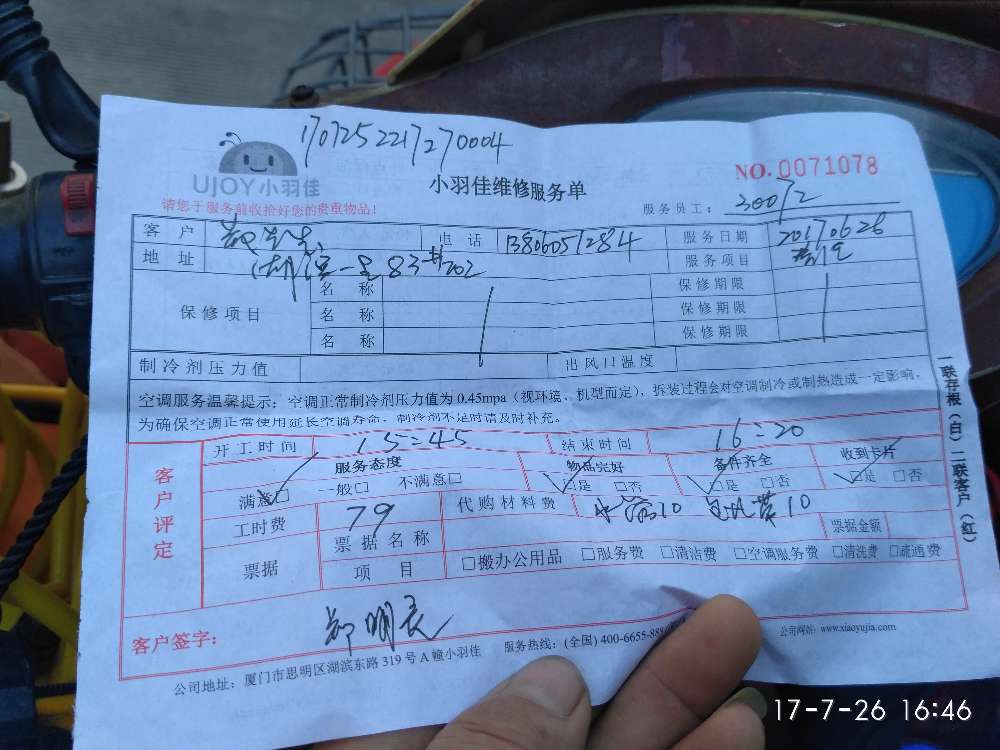 1707252217270004
UJOY小羽佳
小羽佳维修服务单
NO. 0071078
请您于服务前收拾好您的贵重物品！
服务员工： 30072
客 户 郑先生 电 话 13806051284 服务日期 20170626
地 址 湖滨一里83#202 服务项目
保修项目 名 称 保修期限
名 称 保修期限
名 称 保修期限
制冷剂压力值 出风口温度
空调服务温馨提示：空调正常制冷剂压力值为 0.45mpa（视环境、机型而定），拆装过程会对空调制冷或制热造成一定影响，
为确保空调正常使用延长空调寿命，制冷剂不足时请及时补充。
客户评定
开工时间 15:45 结束时间 16:20
服务态度 物品完好 备件齐全 收到卡片
满意□ 一般□ 不满意□ □是 □否 □是 □否 □是 □否
工时费 79 代购材料费 10 10 票据金额
票据 票据名称
项 目 □搬办公用品 □服务费 □清洁费 □空调服务费 □清洗费 □疏通费
客户签字： 郑明良
服务热线：(全国) 400-6655-888
公司网站：www.xiaoyujia.com
公司地址：厦门市思明区湖滨东路 319 号 A 幢小羽佳
一联存根（白）二联客户（红）
17-7-26 16:46